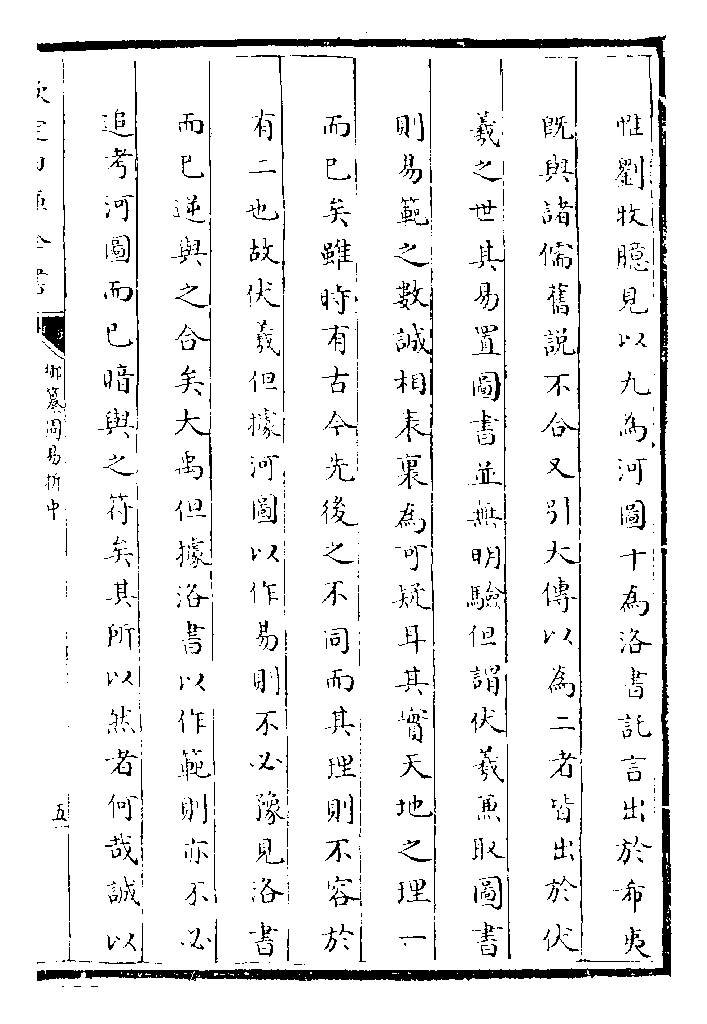 惟劉牧臆見以九為河圖十為洛書託言出於希夷
既與諸儒舊說不合又引大傳以為二者皆出於伏
羲之世其易置圖書並無明驗但謂伏羲兼取圖書
則易範之數誠相表裏為可疑耳其實天地之理一
而已矣雖時有古今先後之不同而其理則不容於
有二也故伏羲但據河圖以作易則不必豫見洛書
而已逆與之合矣大禹但據洛書以作範則亦不必
追考河圖而已暗與之符矣其所以然者何哉誠以
欽定四庫全書
御纂周易折中
五